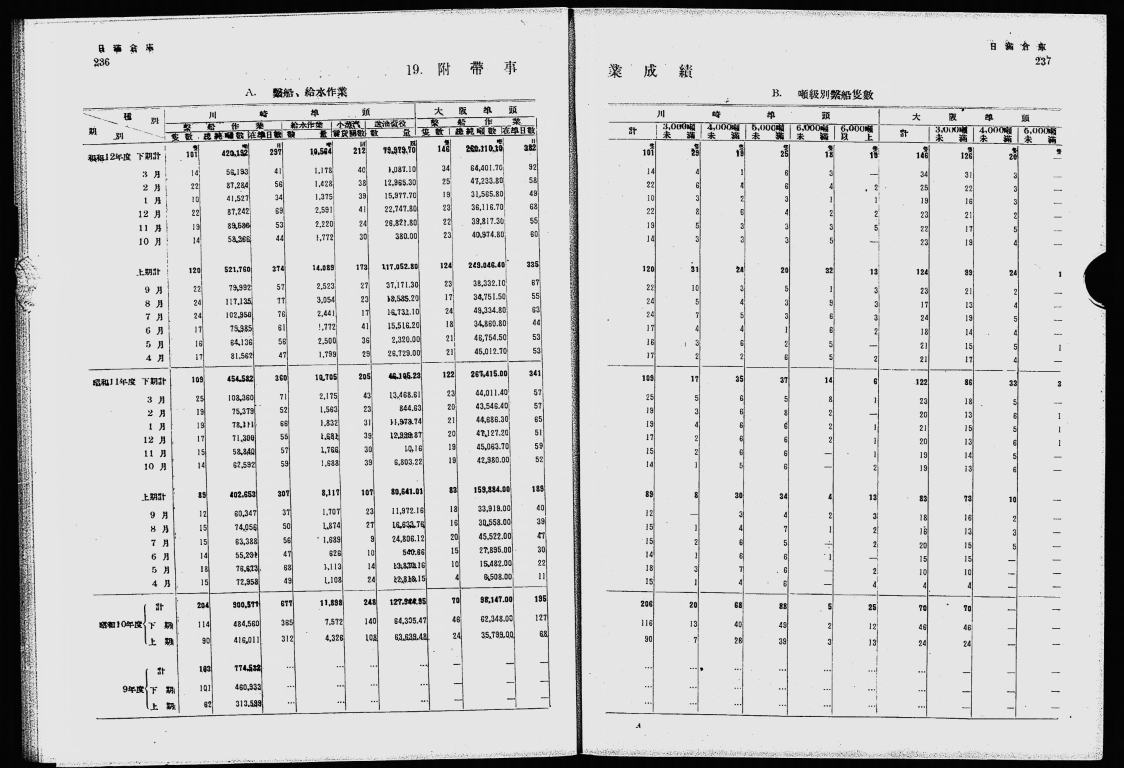 日滿倉庫
236
19. 附帶事
A. 繫船、給水作業
種別
期別
川崎埠頭
大阪埠頭
繫船作業 給水作業 小蒸汽 送油荷役 繫船作業
隻數 總純噸數 在埠日數 數量 數量 隻數 總純噸數 在埠日數
昭和12年度 下期計 101 297 212 146 382
3月 14 56,193 41 1,178 40 34 64,401.70 92
2月 22 87,284 56 1,428 38 12,965.30 25 47,233.80 58
1月 10 41,527 34 1,375 39 15,977.70 19 31,565.80 49
12月 22 87,242 69 2,591 41 22,747.80 23 36,116.70 68
11月 19 53 2,220 24 26,821.80 22 39,817.30 55
10月 14 44 1,772 30 380.00 23 40,974.80 60
上期計 120 521,760 374 14,089 173 117,052.80 124 249,046.40 335
9月 22 79,992 57 2,523 27 37,171.30 23 38,332.10 67
8月 24 117,135 77 3,054 23 18,585.20 17 34,751.50 55
7月 24 102,950 76 2,441 17 16,732.10 24 49,334.80 63
6月 17 79,985 61 1,772 41 15,516.20 18 34,860.80 44
5月 16 64,136 56 2,500 36 2,320.00 21 46,754.50 53
4月 17 81,562 47 1,799 29 26,729.00 21 45,012.70 53
昭和11年度 下期計 109 454,582 360 10,705 205 46,105.23 122 267,415.00 341
3月 25 108,360 71 2,175 43 13,468.61 23 44,011.40 57
2月 19 75,379 52 1,563 23 844.63 20 43,546.40 57
1月 19 66 1,832 31 11,978.74 21 44,686.30 65
12月 17 71,300 55 1,681 39 12,999.87 20 47,127.20 51
11月 15 58,840 57 1,766 30 10.16 19 45,063.70 59
10月 14 62,592 59 1,688 39 6,803.22 19 42,980.00 52
上期計 89 402,653 307 8,117 107 80,641.01 83 159,884.00 189
9月 12 60,347 37 1,707 23 11,972.16 18 33,919.00 40
8月 15 74,056 50 1,874 27 16,633.76 16 30,558.00 39
7月 15 63,388 56 1,689 9 24,806.12 20 45,522.00 47
6月 14 55,291 47 626 10 15 27,895.00 30
5月 18 76,613 68 1,113 14 10 15,482.00 22
4月 15 72,958 49 1,108 24 4 6,508.00 11
計 204 900,571 677 11,898 248 70 98,147.00 195
昭和10年度 下期 114 484,560 365 7,572 140 64,305.47 46 62,348.00 127
上期 90 416,011 312 4,326 108 63,639.48 24 35,799.00 68
計 163 774,532 … … … … — — —
9年度 下期 101 460,933 … … … … — — —
上期 62 313,599 … … … … — — —
日滿倉庫
237
業成績
B. 噸級別繫船隻數
川崎埠頭
大阪埠頭
計 3,000噸未滿 4,000噸未滿 5,000噸未滿 6,000噸未滿 6,000噸以上 計 3,000噸未滿 4,000噸未滿 5,000噸未滿
101 29 18 25 18 146 126 20 —
14 4 1 6 3 — 34 31 3 —
22 6 4 6 4 2 25 22 3 —
10 3 2 3 1 1 19 16 3 —
22 8 6 4 2 2 23 21 2 —
19 5 3 3 3 5 22 17 5 —
14 3 3 3 5 — 23 19 4 —
120 31 24 20 32 13 124 99 24 1
22 10 3 5 1 3 23 21 2 —
24 5 4 3 9 3 17 13 4 —
24 7 5 3 6 3 24 19 5 —
17 4 4 1 6 2 18 14 4 —
16 3 6 2 5 — 21 15 5 1
17 2 2 6 5 2 21 17 4 —
109 17 35 37 14 6 122 86 33 3
25 5 6 5 8 1 23 18 5 —
19 3 6 8 2 — 20 13 6 1
19 4 6 6 2 1 21 15 5 1
17 2 6 6 2 1 20 13 6 1
15 2 6 6 — 1 19 14 5 —
14 1 5 6 — 2 19 13 6 —
89 8 30 34 4 13 83 73 10 —
12 — 3 4 2 3 18 16 2 —
15 1 4 7 1 2 16 13 3 —
15 2 6 5 — 2 20 15 5 —
14 1 6 6 1 — 15 15 — —
18 3 7 6 — 2 10 10 — —
15 1 4 6 — 4 4 4 — —
206 20 68 88 5 25 70 70 — —
116 13 40 49 2 12 46 46 — —
90 7 28 39 3 13 24 24 — —
… … … … … … — — — —
… … … … … … — — — —
… … … … … … — — — —